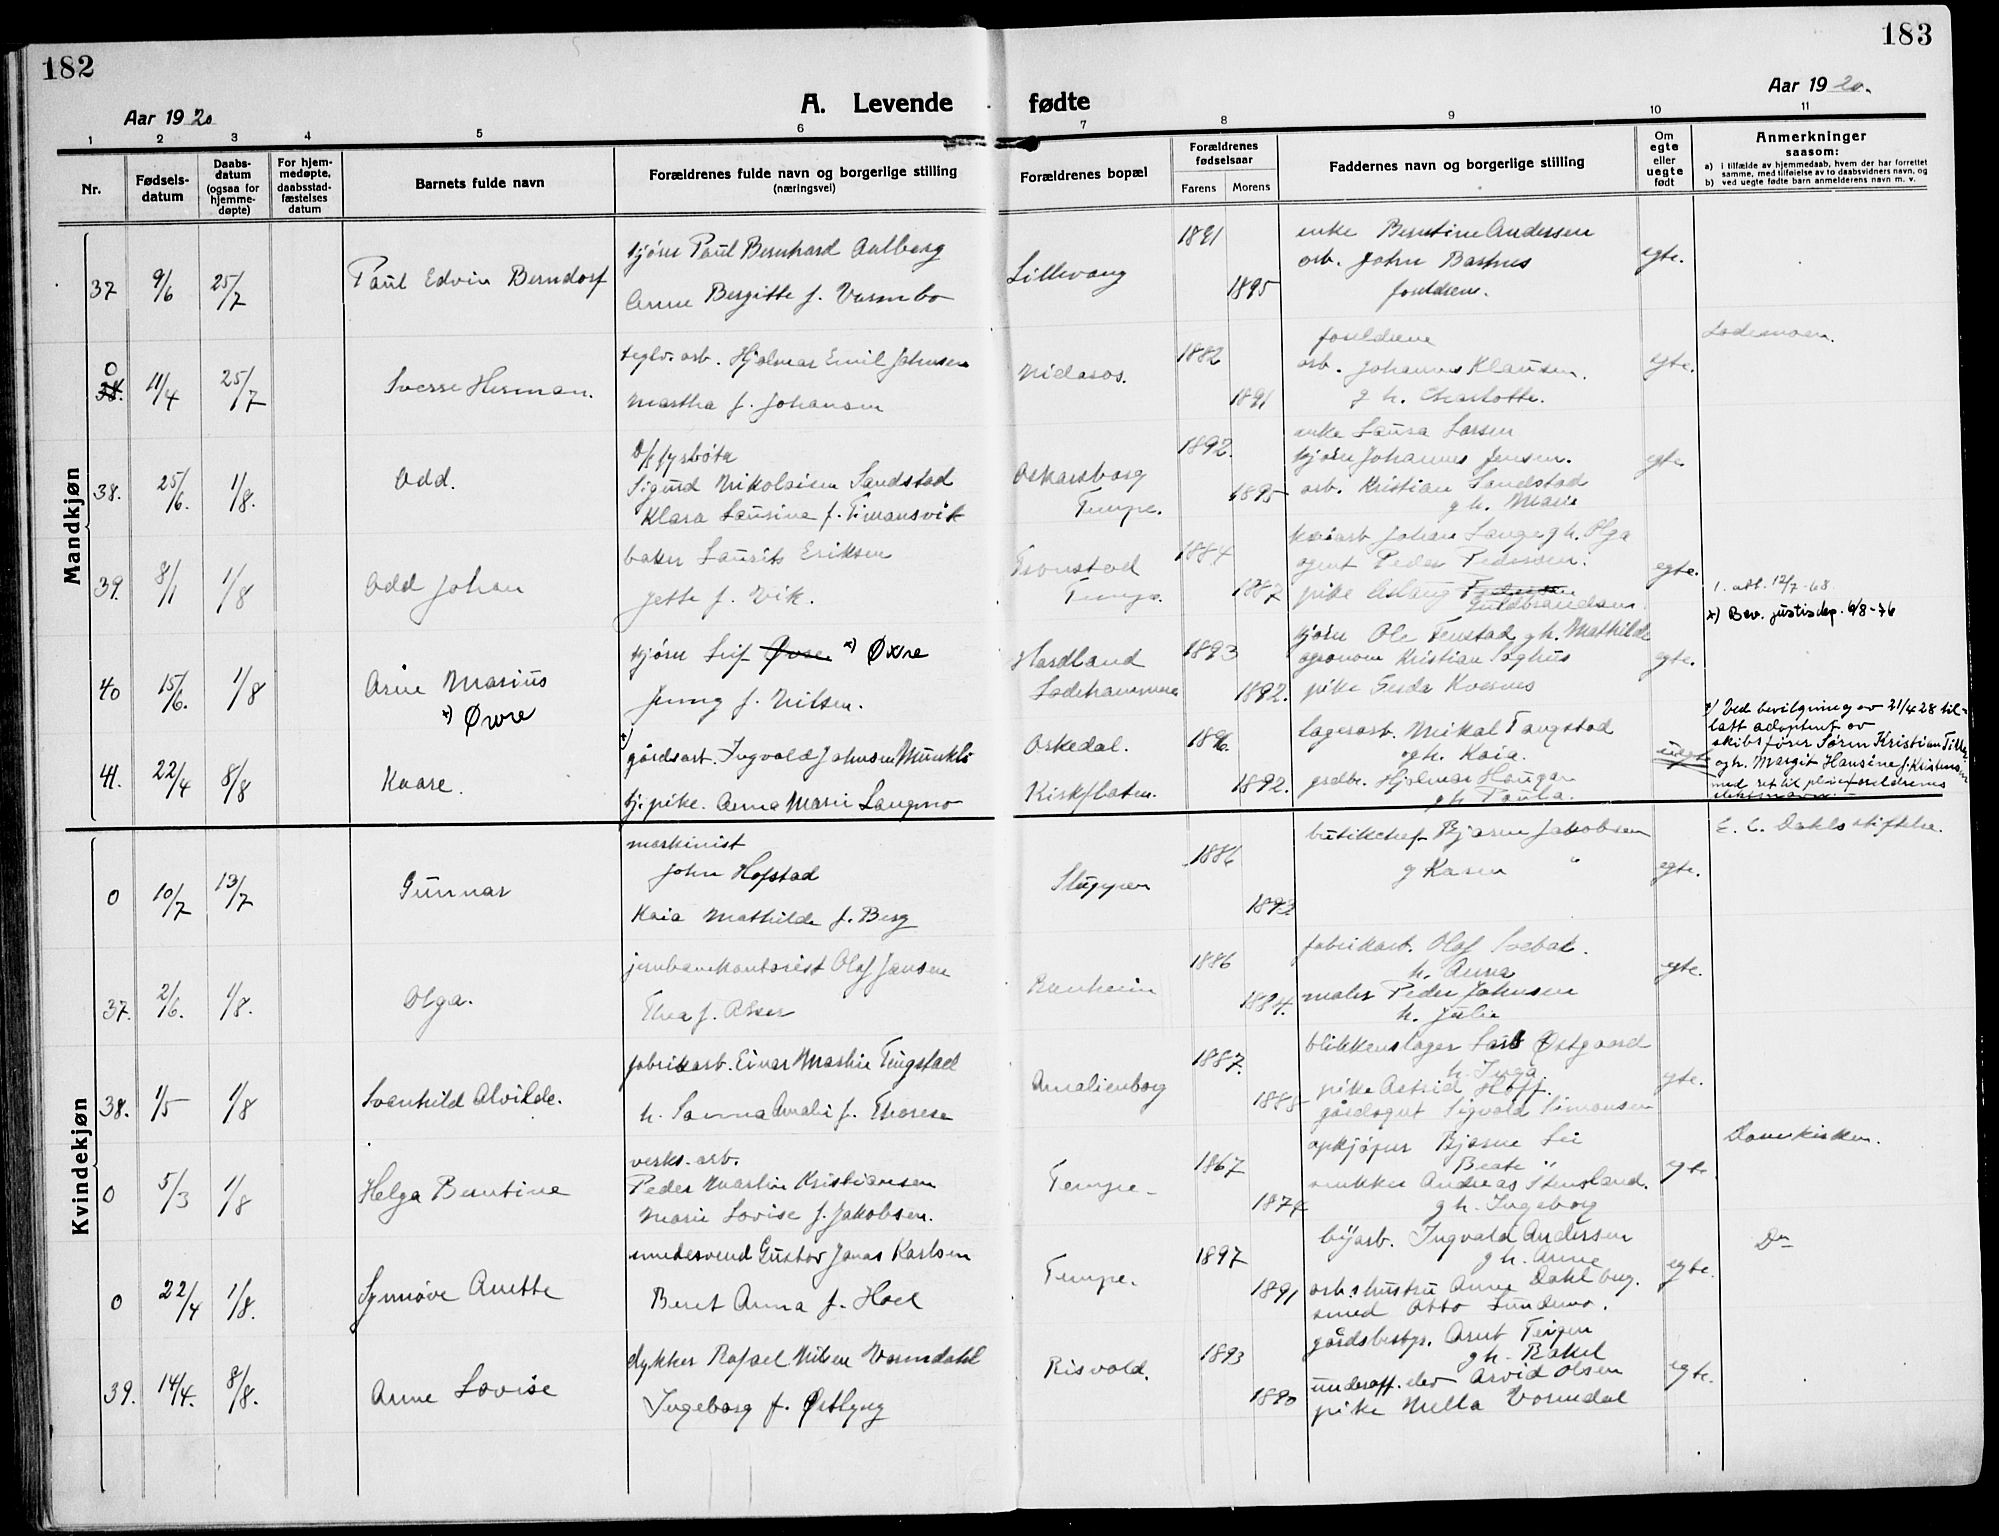 182
183
Aar 1920
A. Levende fødte
Aar 1920.
1 2 3 4 5 6 7 8 9 10 11
Nr.
Fødsels-
datum
Daabs-
datum
(ogsaa for
hjemme-
døpte)
For hjem-
medøpte,
daabsstad-
fæstelses
datum
Barnets fulde navn
Forældrenes fulde navn og borgerlige stilling
(næringsvei)
Forældrenes bopæl
Forældrenes
fødselsaar
Farens Morens
Faddernes navn og borgerlige stilling
Om
egte
eller
uegte
født
Anmerkninger
saasom:
a) i tilfælde av hjemmedaab, hvem der har forrettet
samme, med tilføielse av to daabsvidners navn, og
b) ved uegte fødte barn anmelderens navn m. v.
Mandkjøn
37 9/6 25/7 Paul Edvin Berndorf
kjører Paul Bernhard Aalberg
Anne Bergitte f. Varmbo
Lillevang
1891
1895
enke Berntine Andersen
arb. John Basnes
foreldrene.
egte.
0
38. 11/4 25/7 Sverre Herman.
teglv. arb. Hjalmar Emil Johnsen
Martha f. Johansen
Nidaros.
1882
1891
foreldrene
arb. Johannes Klausen.
g h. Charlotte.
egte.
Lademoen.
38. 25/6. 1/8. Odd.
fyrbøter
Sigurd Nikolaisen Sandstad
Klara Laurine f. Timansvik
Oskarsborg
Tempe.
1892.
1895
enke Laura Larsen
kjører Johannes Jensen.
arb. Kristian Sandstad
g h. Marie
egte.
39. 8/1 1/8 Odd Johan
baker Laurits Eriksen
Jette f. Vik.
Granstad
Tempe.
1884
1887
kaiarb Johan Lange g h. Olga
agent Peder Pedersen.
pike Aslaug Pedersen
Guldbrandsen
egte.
1. adt. 12/7-68.
x) Bev. justisdep. 6/8-76
40 15/6. 1/8 Arne Marius
x) Øvre
kjører Leif Øvre x) Øvre
Jenny f. Nilsen.
Hardland
Ladehammeren
1893
1892.
kjører Ole Fenstad g h. Mathilde
agronom Kristian Saghus
pike Gerda Kvernes
egte.
41. 22/4 8/8 Kaare.
x)
gårdsarb. Ingvald Johnsen Munklø
tj. pike. Anna Marie Langmo
Oskedal.
Kirkflaten.
1896.
1892.
lagerarb. Mikal Tangstad
og h. Kaia.
gådbr. Hjalmar Haugan
g h Paula.
uegte
x) Ved bevilgning av 21/4 28 til-
latt adoptert av
skibsfører Søren Kristian Tiller
og h. Margit Hansine f. Kristensen
med ret til pleieforeldrenes
slektsnavn.
Kvindekjøn
0 10/7 13/7 Gunnar
maskinist
John Hofstad
Kaia Mathilde f. Berg
Sluppen
1886
1893
butikchef Bjarne Jakobsen
g Karen "
egte.
E. C. Dahls stiftelse.
37. 2/6. 1/8. Olga.
jernbanekontorist Olaf Jansen
Thea f. Asser
Ranheim
1886
1884.
fabrikarb. Olaf Svebak.
h. Anna
maler Peder Johnsen
h. Julie
egte.
38. 1/5 1/8 Svanhild Alvilde.
fabrikarb. Einar Martin Tingstad
h. Sanna Amalie f. Thorese
Amalienborg
1887.
1888
blikkenslager Lars Østgaard
h. Inga.
pike Astrid Hoff.
gårdsgut Sigvald Simonsen
egte.
0 5/3 1/8 Helga Berntine
verks. arb.
Peder Martin Kristiansen
Marie Lovise f. Jakobsen.
Tempe
1867
1874
opkjøper Bjarne Lie
Beate "
snekker Andreas Stensland.
g h. Ingeborg
egte
Domkirken.
0 22/4 1/8. Synnøve Anette
smedesvend Gustav Jonas Karlsen
Beret Anna f. Hoel
Tempe.
1897
1891
byarb. Ingvald Andersen
g h. Anne
arb.s hustru Anne Dahlberg.
smed Otto Sundmo.
egte.
Do
39. 14/4. 8/8. Anne Lovise
dykker Rafael Nilsen Vormdahl
Ingeborg f. Østlyng
Risvold.
1893
1890
gårdsbestyr. Arnt Teigen
g h. Rakel
underoff. elev Arvid Olsen
pike Milla Vormdal
egte.